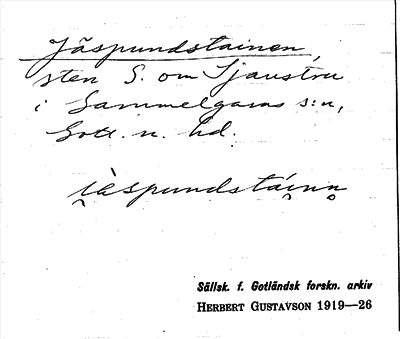 Jäspundstainen,
sten S. om Tjaustru
i Gammelgarns s:n,
Gotl. n. hd.
i̯àspundstái̯nn̥
Sällsk. f. Gotländsk forskn. arkiv
HERBERT GUSTAVSON 1919—26